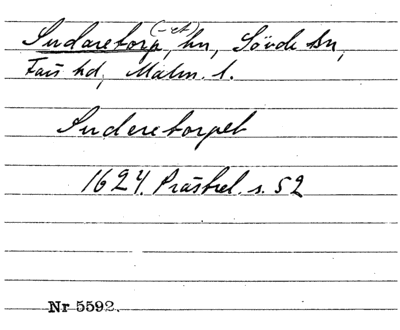 Sudaretorp, (-et) hn, Sövde sn,
Färs hd, Malm. l.
Suderetorpet
1624. Prästrel. s. 52
Nr 5592.